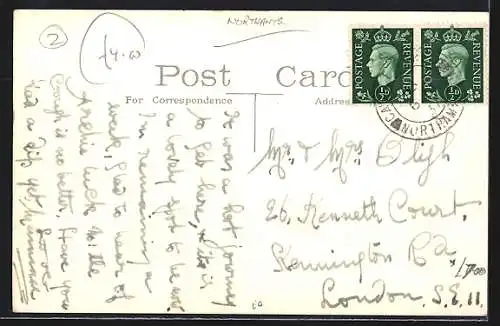 2
£4.00
NORTHANTS
Post Card
For Correspondence
Address
POSTAGE REVENUE
½D
POSTAGE REVENUE
½D
NORTHAMPTON
It was a hot journey
to get here, & it is
a lovely spot to be not
I'm remaining a
week, glad to hear of
Archie's luck. Is the
Cough is no better. Have you
had a dip yet,
love
Mr & Mrs Bligh
26. Kenneth Court.
Kennington Rd
London. S.E. 11.